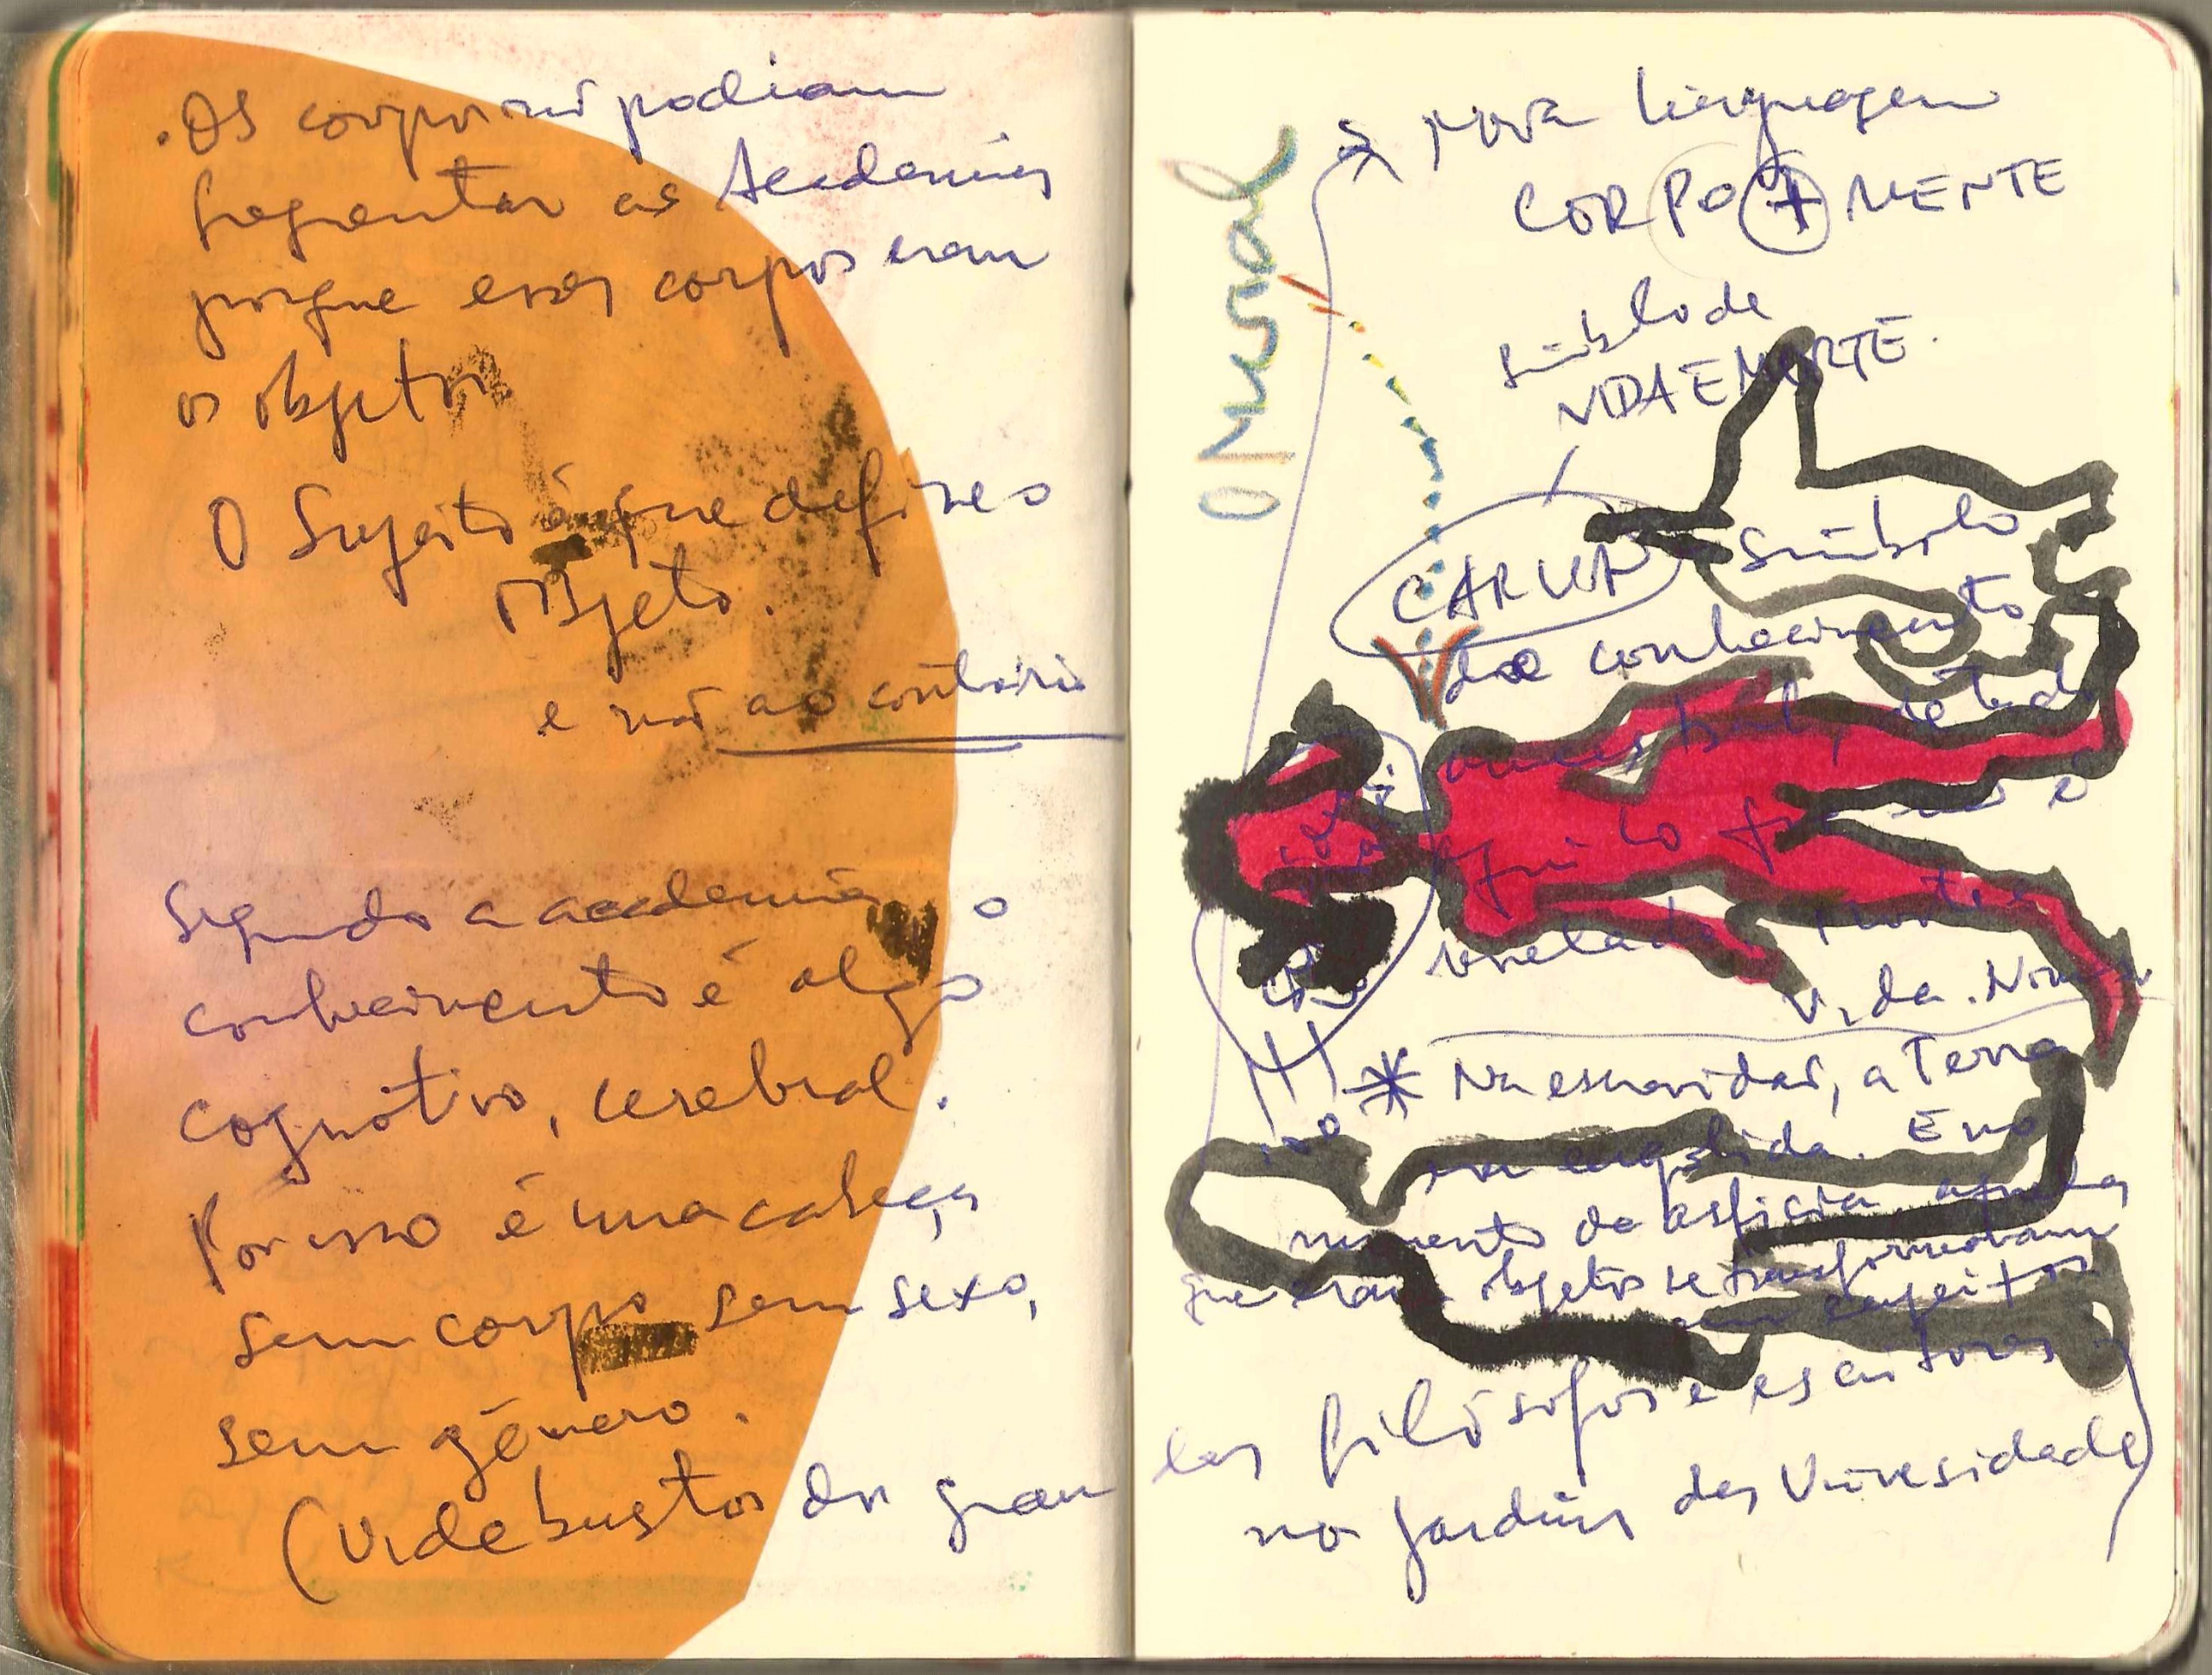 . Os corpos não podiam
freqentar as Academias
porque esses corpos eram
os objetos
O Sujeito é que define o
objeto.
e não ao contário
Segundo a academia, o
conhecimento é algo
cognitivo, cerebral.
Por isso é uma cabeça
sem corpo sem sexo,
sem gênero.
(Vide bustos dos gran
O Mural
nova linguagem
CORPO + MENTE
símbolo de
VIDA E MORTE.
símbolo
de conhecimento
ancestral, de tudo
aquilo que não é
revelado
Vida.
* Na escravidão, a Terra
era engolida. E no
momento da asfixia aqueles
que eram objetos se transformavam
em sujeitos
des filósofos e escritores
no jardins das Universidades